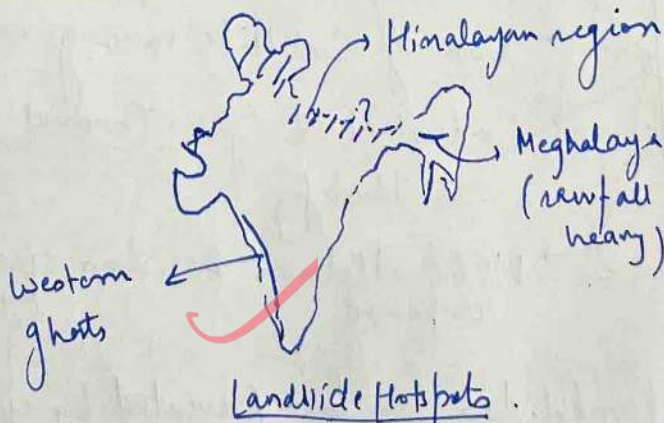 Himalayan region
Meghalaya
(rainfall
heavy)
Western
ghats
Landslide Hotspots.